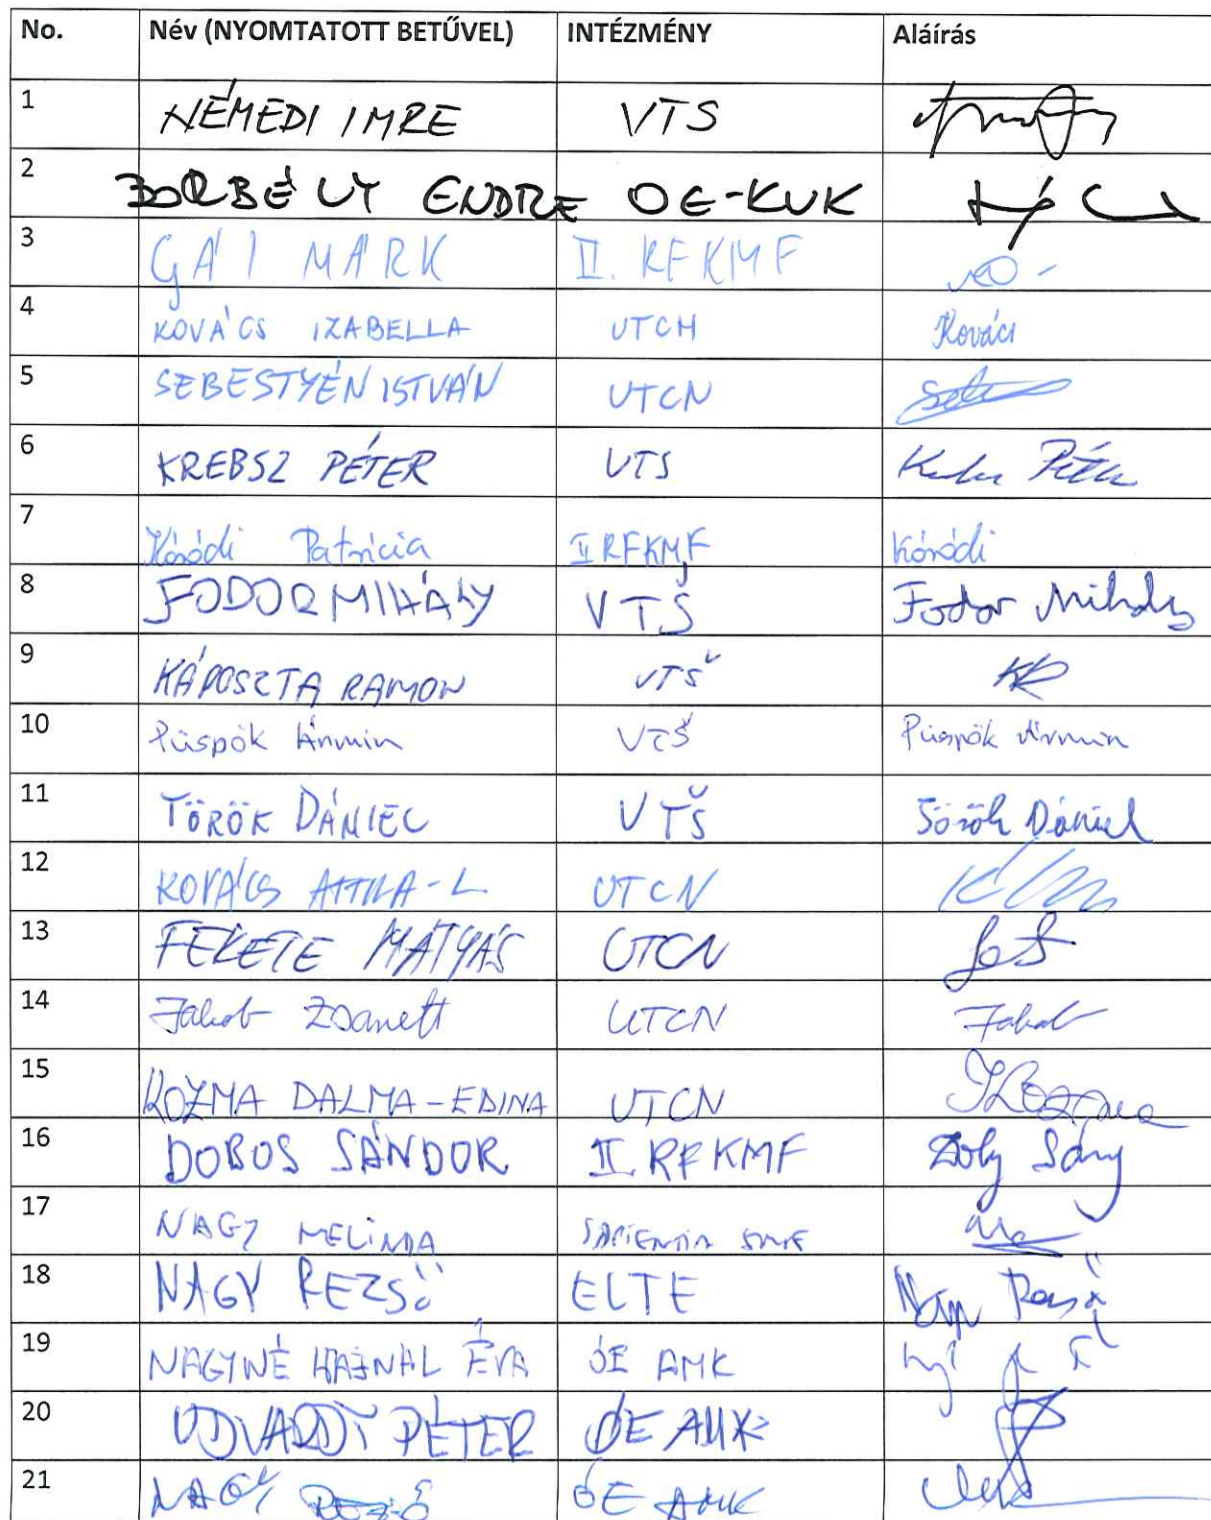 No. Név (NYOMTATOTT BETŰVEL) INTÉZMÉNY Aláírás
1 NÉMEDI IMRE VTS
2 BORBÉLY ENDRE OE-KVK
3 GÁL MÁRK II. RFKMF
4 KOVÁCS IZABELLA UTCN Kovács
5 SEBESTYÉN ISTVÁN UTCN
6 KREBSZ PÉTER VTS Péter
7 Kóródi Patrícia II RFKMF Kóródi
8 FODOR MIHÁLY VTŠ Fodor Mihály
9 KÁPOSZTA RAMON VTŠ
10 Püspök Ármin VTŠ Püspök Ármin
11 TÖRÖK DÁNIEL VTŠ Török Dániel
12 KOVÁCS ATTILA-L. UTCN
13 FEKETE MÁTYÁS UTCN
14 Jakab Zsanett UTCN Jakab
15 KOZMA DALMA-EDINA UTCN Kozma
16 DOBOS SÁNDOR II. RFKMF
17 NAGY MELINDA SAPIENTIA EMTE
18 NAGY REZSŐ ELTE Nagy Rezső
19 NAGYNÉ HAJNAL ÉVA ÓE AMK
20 UDVARDY PÉTER ÓE AMK
21 NAGY ÓE AMK